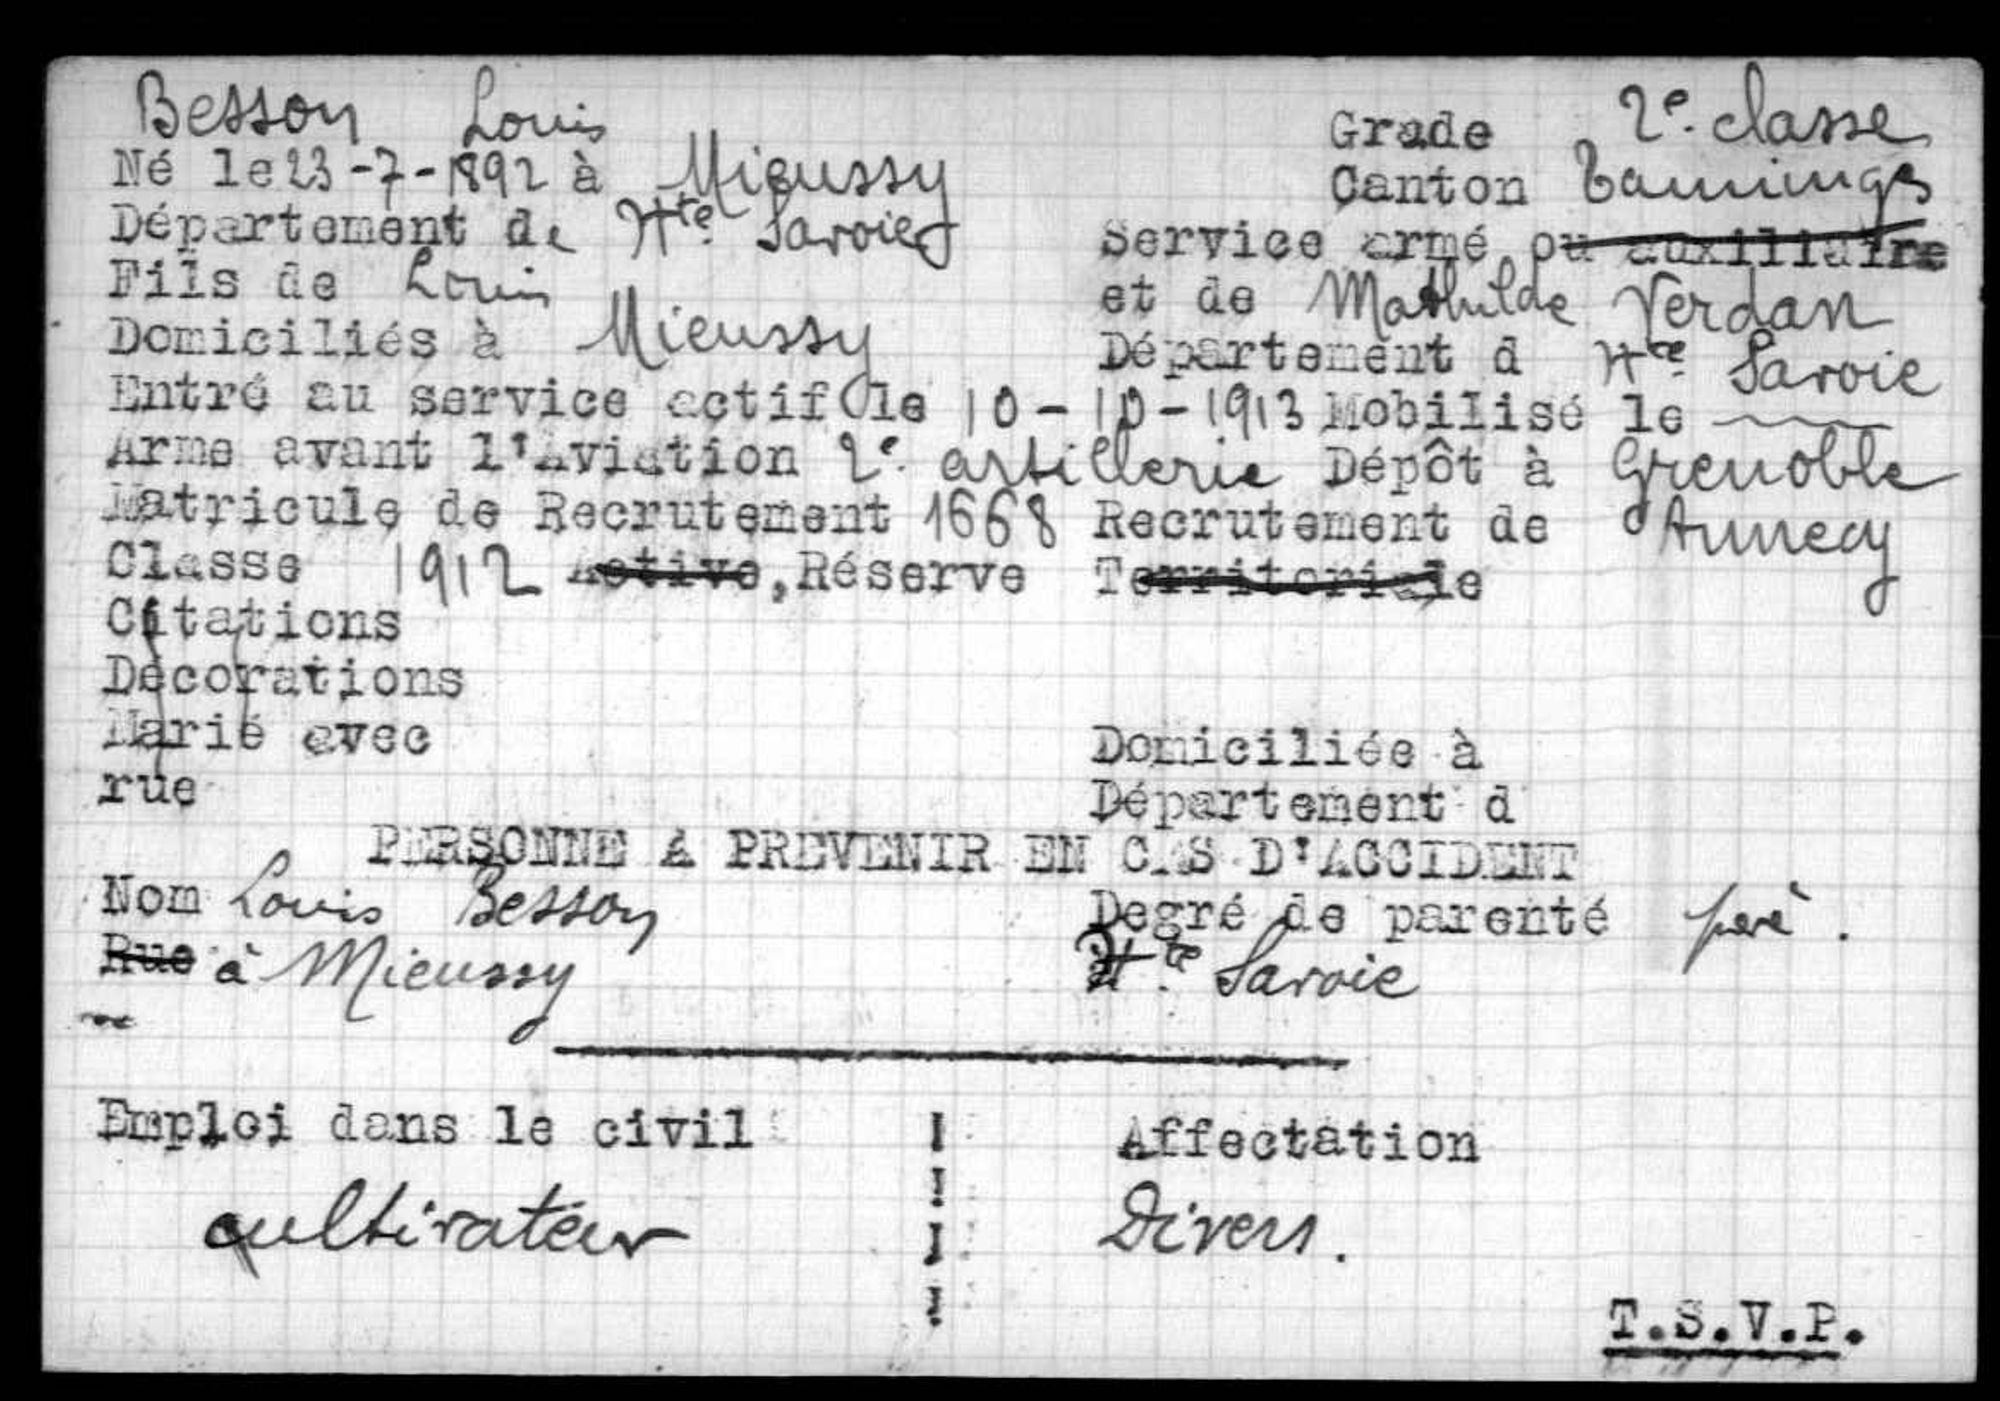 Besson Louis Grade 2e. classe
Né le 23-7-1892 à Mieussy Canton Taninges
Département de Hte. Savoie Service armé ou auxiliaire
Fils de Louis et de Mathilde Verdan
Domiciliés à Mieussy Département d Hte. Savoie
Entré au service actif le 10-10-1913 Mobilisé le
Arme avant l'Aviation 2e. artillerie Dépôt à Grenoble
Matricule de Recrutement 1668 Recrutement de Annecy
Classe 1912 Active, Réserve Territoriale
Citations
Décorations
Marié avec Domiciliée à
rue Département d
PERSONNE A PREVENIR EN CAS D'ACCIDENT
Nom Louis Besson Degré de parenté père.
Rue à Mieussy Hte. Savoie
Emploi dans le civil Affectation
cultivateur Divers.
T.S.V.P.